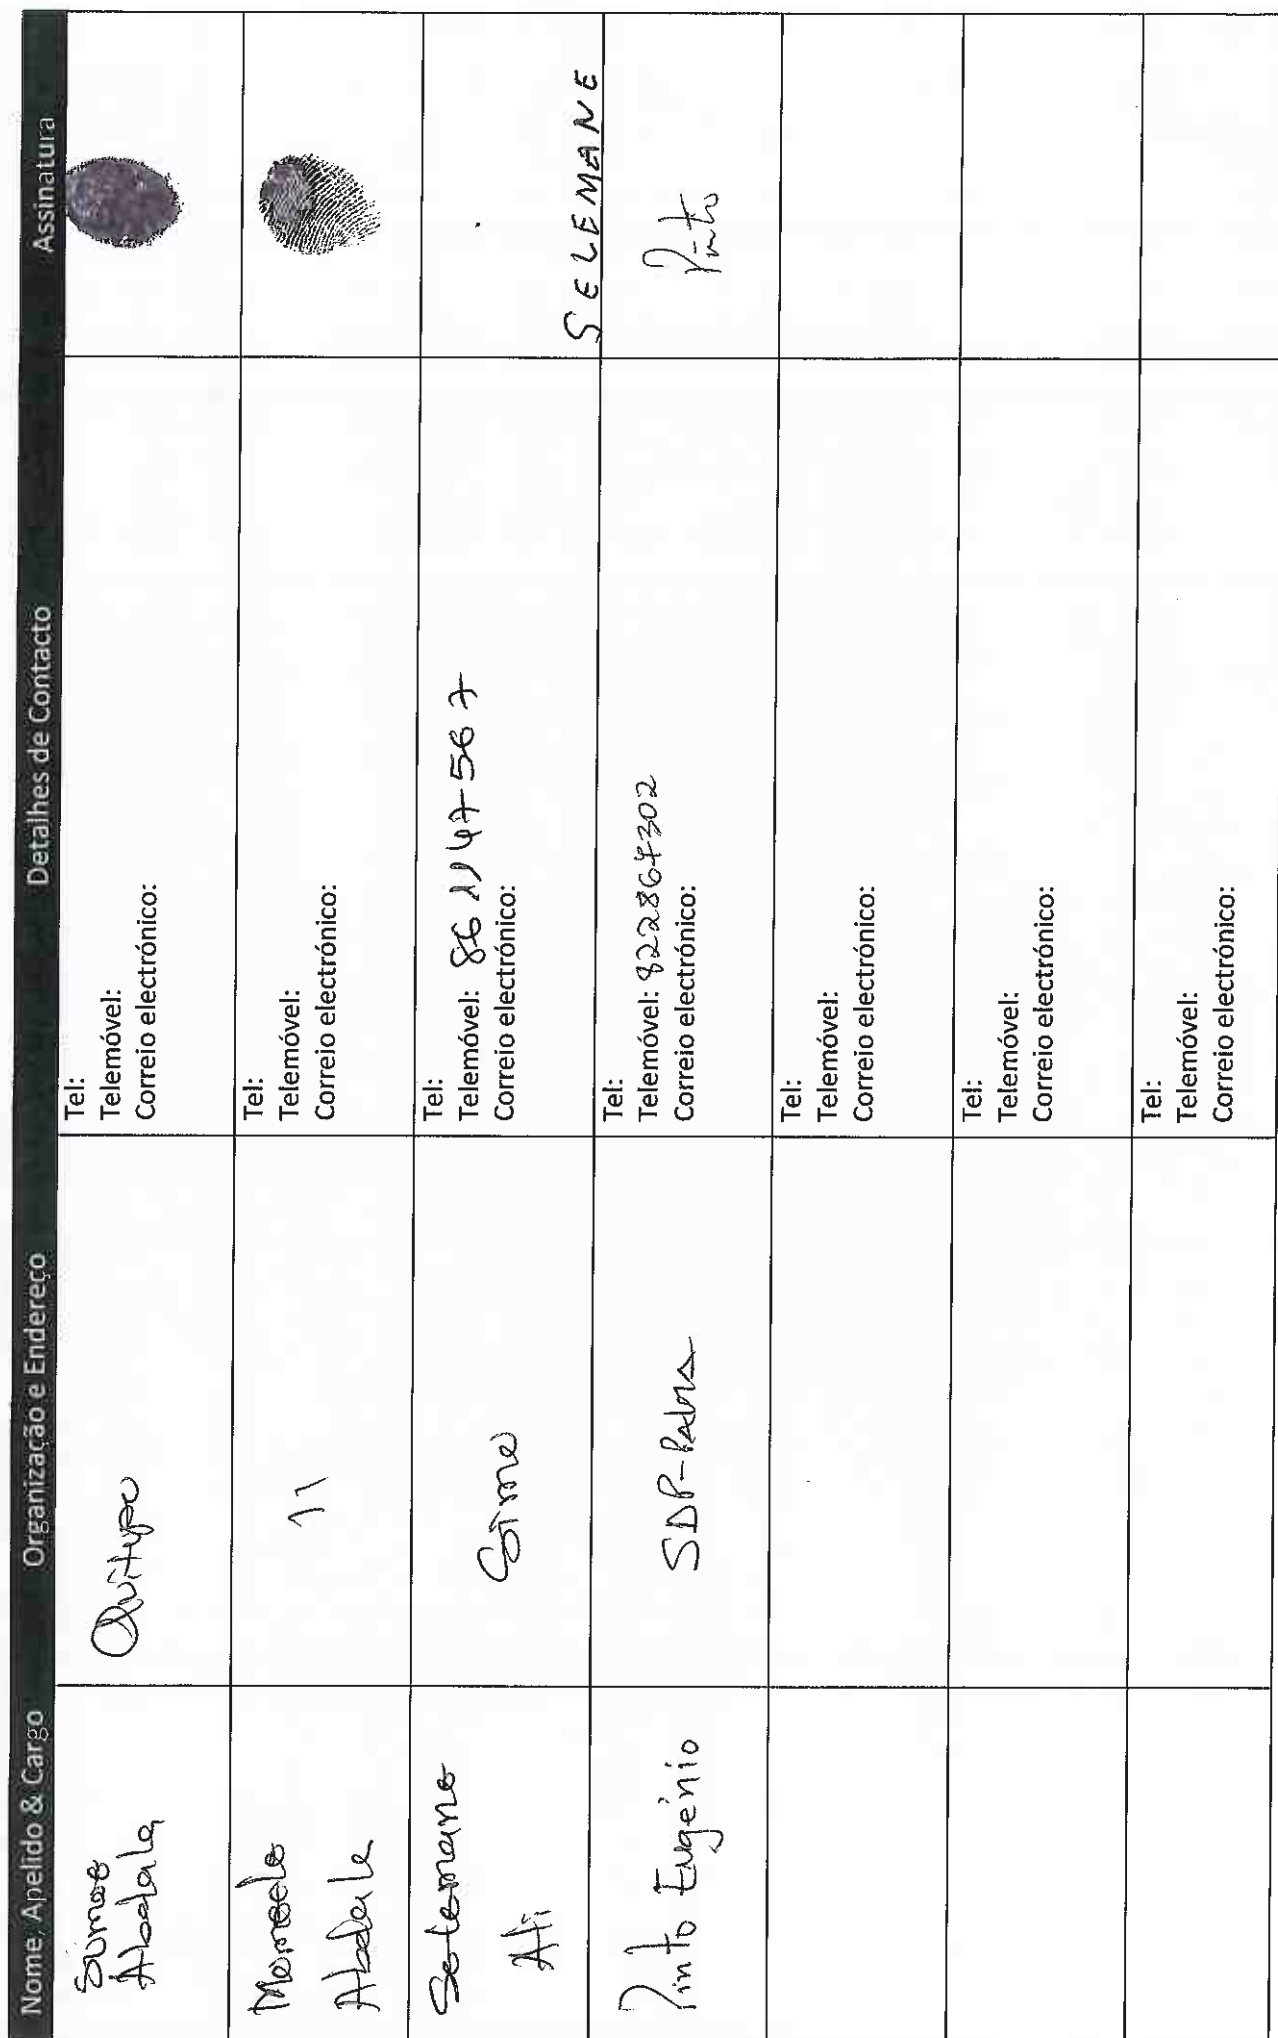 Nome, Apelido & Cargo Organização e Endereço Detalhes de Contacto Assinatura
Sumae Abdala Quitupo Tel:
Telemóvel:
Correio electrónico:
Abdala 11 Tel:
Telemóvel:
Correio electrónico:
Selemane Ali Tel:
Telemóvel: 86 1147 567
Correio electrónico:
SELEMANE
Pinto Eugénio SDP-Palma Tel:
Telemóvel: 822864302
Correio electrónico:
Pinto
Tel:
Telemóvel:
Correio electrónico:
Tel:
Telemóvel:
Correio electrónico:
Tel:
Telemóvel:
Correio electrónico: